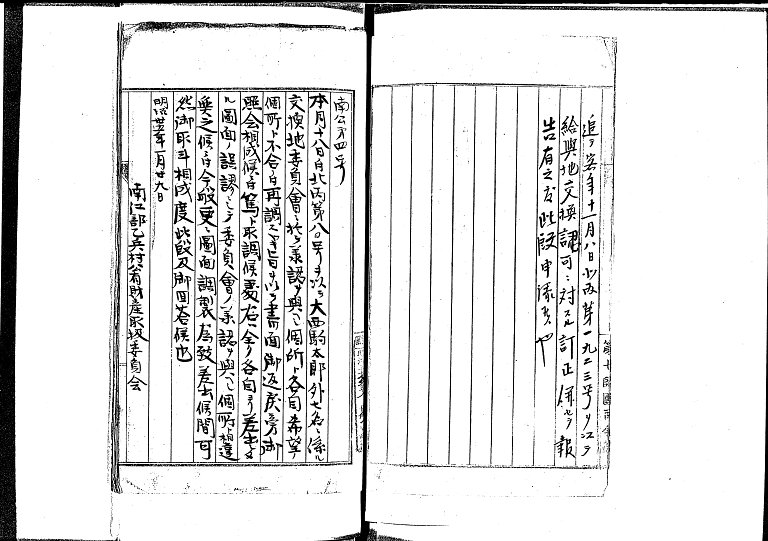 追テ客年十一月八日北丙第一九二三号ヲ以テ
給與地交換認可ニ対スル訂正併セテ報
告有之度此段申添候也
南公第四号
本月十八日付北丙第八〇号ヲ以テ大西駒太郎外七名ニ係ル
交換地委員會ニ於テ承認ヲ與ヘシ個所ト各自希望
個所ト不合ニ付再調スヘキ旨ヲ以テ書面御返戻旁御
照会相成候ニ付篤ト取調候處右ハ全ク各自ヨリ差出セ
ル圖面ノ誤謬ニシテ委員會ノ承認ヲ與ヘシ個所ト相違
無之候ニ付今般更ニ圖面調製為致差出候間可
然御取斗相成度此段及御回答候也
明治卅五年一月廿九日
南江部乙兵村公有財産取扱委員会